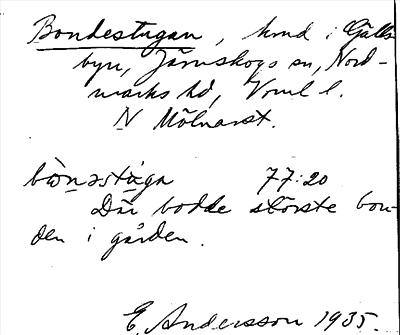 Bondestugan, hmd i Gälls-
byn, Järnskogs sn, Nord-
marks hd, Vrml l.
N Mölnarst.
bὼn̲əstùga 77:20
Där bodde störste bon-
den i gården.
E. Andersson 1935.